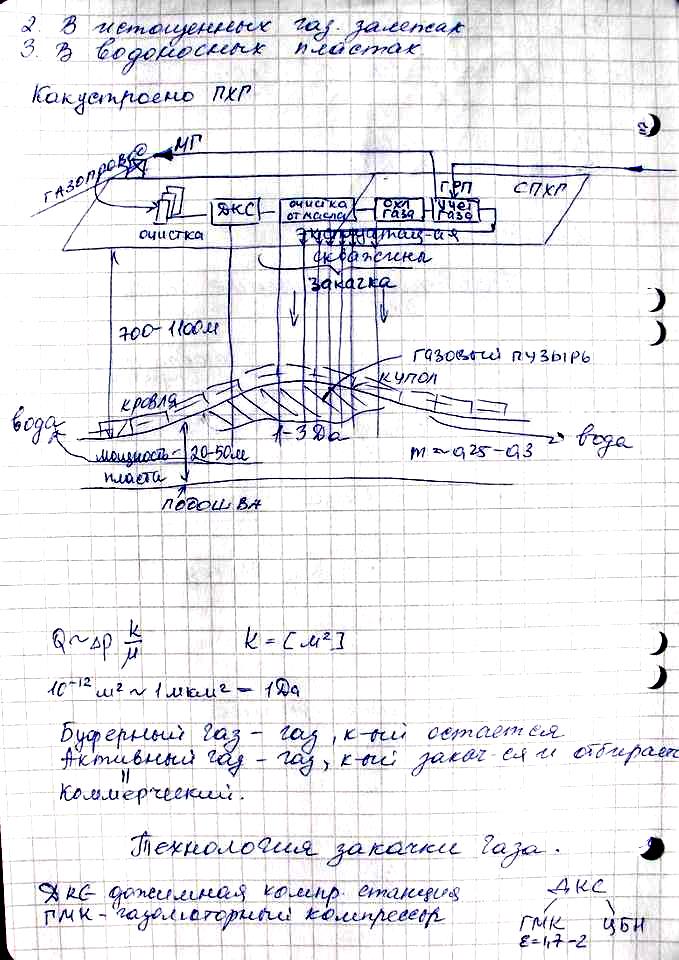 2. В истощенных газ. залежах
3. В водоносных пластах
Как устроено ПХГ
МГ
ГАЗОПРОВОД
ГРП
СПХГ
ДКС
очистка от масла
охл газа
учет газа
очистка
эксплуатац-ая
скважины
закачка
700-1100м
газовый пузырь
купол
кровля
вода
1-3 Да
вода
мощность - 20-50м
пласта
m ~ 0,25-0,3
ПОДОШВА
Q ~ Δp k/μ
K = [м²]
10⁻¹² м² ~ 1 мкм² = 1Да
Буферный газ - газ, к-ый остается
Активный газ - газ, к-ый закач-ся и отбирает
"
Коммерческий.
Технология закачки газа.
ДКС - дожимная компр. станция
ГМК - газомоторный компрессор
ДКС
ГМК ЦБН
ε=1,7-2